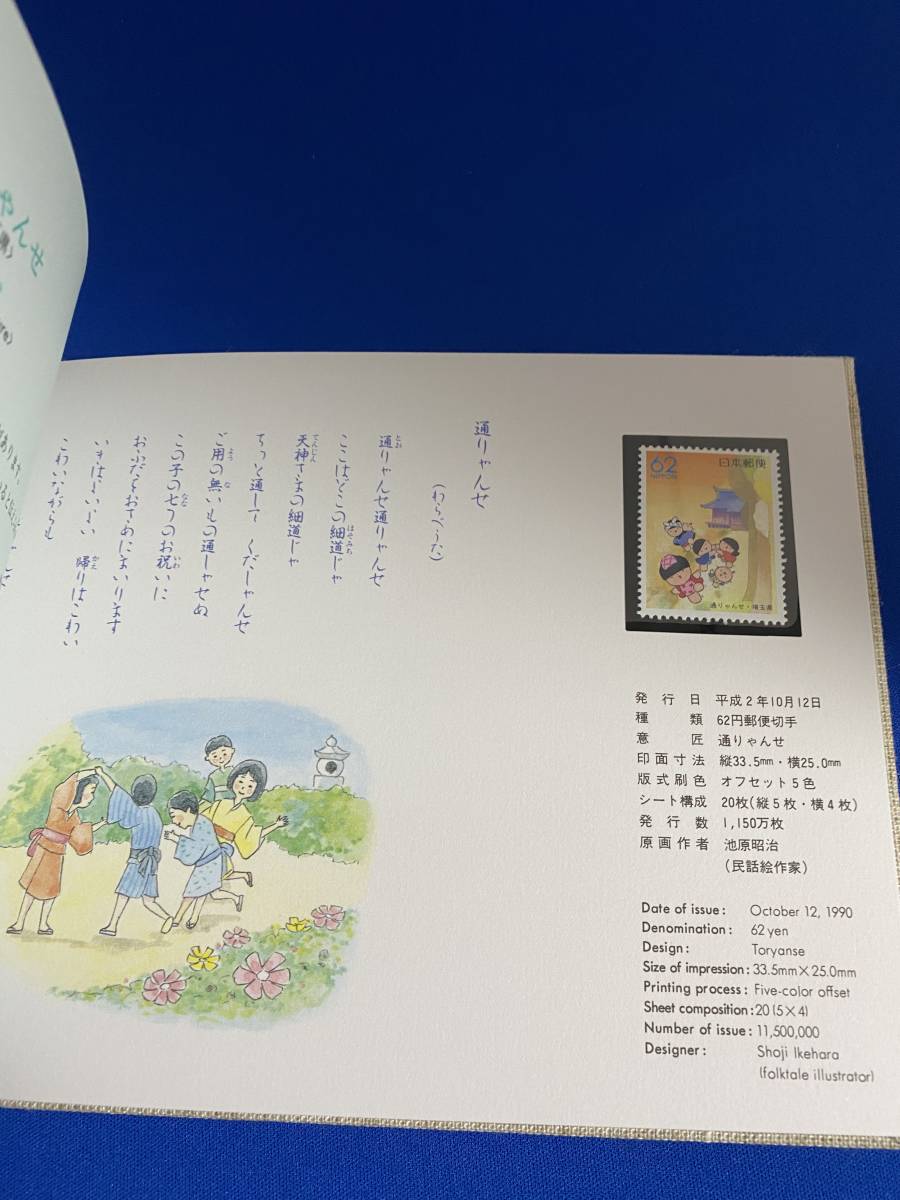 ゃんせ
通りゃんせ
(わらべうた)
通りゃんせ通りゃんせ
ここはどこの細道じゃ
天神さまの細道じゃ
ちっと通して くだしゃんせ
ご用の無いもの通しゃせぬ
この子の七つのお祝いに
おふだをおさめにまいります
いきはよいよい 帰りはこわい
こわいながらも
62
NIPPON
日本郵便
通りゃんせ・埼玉県
発行日 平成2年10月12日
種類 62円郵便切手
意匠 通りゃんせ
印面寸法 縦33.5mm・横25.0mm
版式刷色 オフセット5色
シート構成 20枚(縦5枚・横4枚)
発行数 1,150万枚
原画作者 池原昭治
(民話絵作家)
Date of issue: October 12, 1990
Denomination: 62 yen
Design: Toryanse
Size of impression: 33.5mm×25.0mm
Printing process: Five-color offset
Sheet composition: 20 (5×4)
Number of issue: 11,500,000
Designer: Shoji Ikehara
(folktale illustrator)